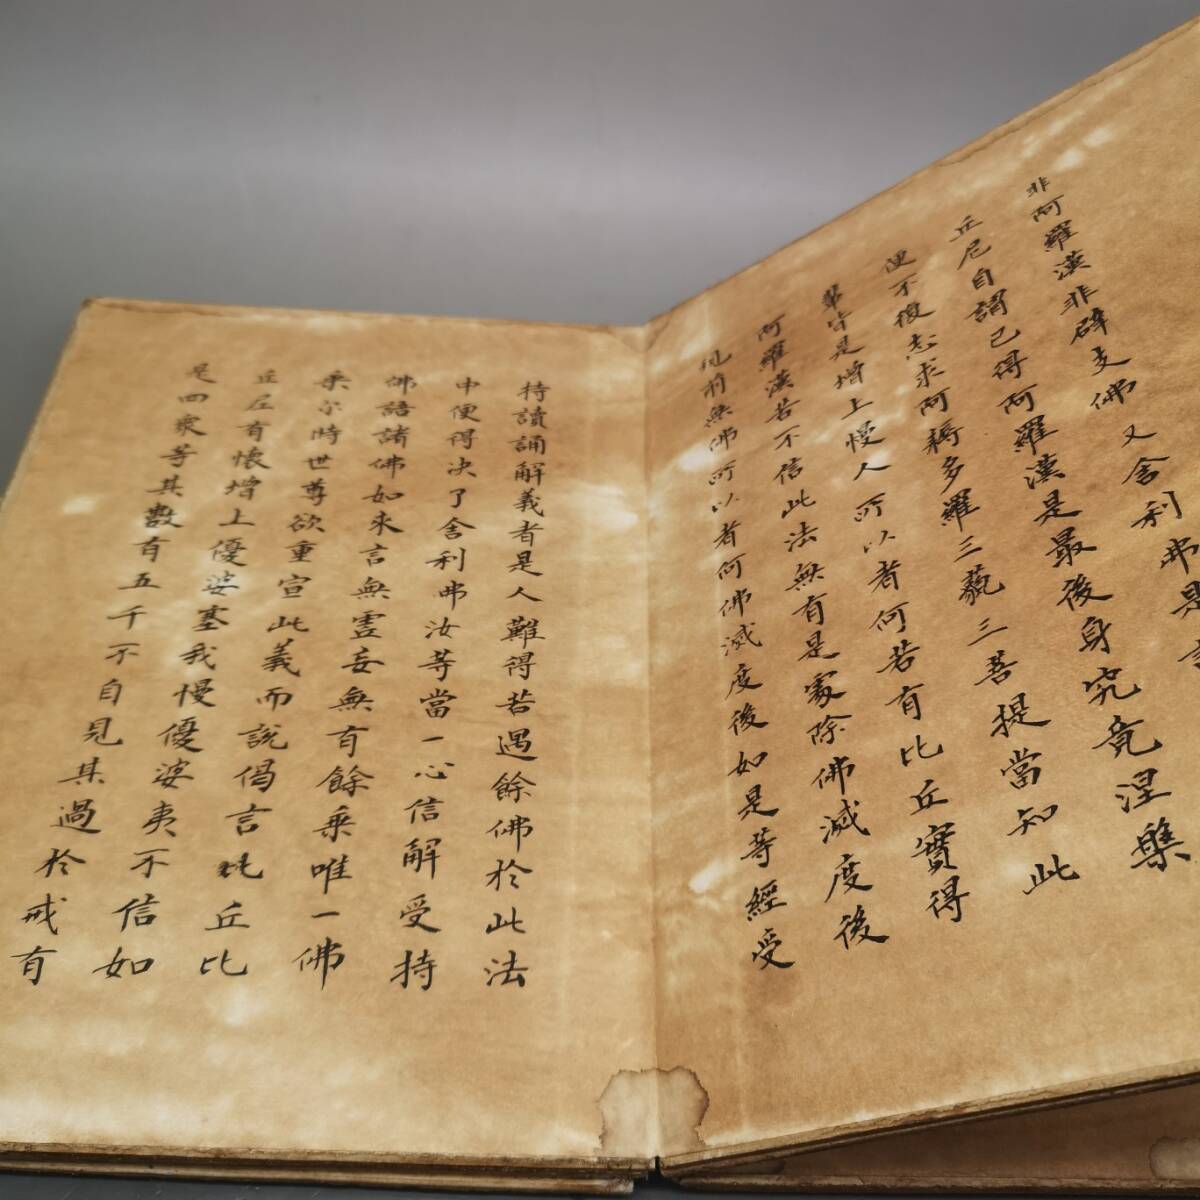 非阿羅漢非辟支佛又舍利弗是諸
丘尼自謂已得阿羅漢是最後身究竟涅槃
便不復志求阿耨多羅三藐三菩提當知此
輩皆是增上慢人所以者何若有比丘實得
阿羅漢若不信此法無有是處除佛滅度後
現前無佛所以者何佛滅度後如是等經受
持讀誦解義者是人難得若遇餘佛於此法
中便得決了舍利弗汝等當一心信解受持
佛語諸佛如來言無虛妄無有餘乘唯一佛
乘尔時世尊欲重宣此義而說偈言比丘比
丘尼有懷增上優婆塞我慢優婆夷不信如
是四衆等其數有五千不自見其過於戒有